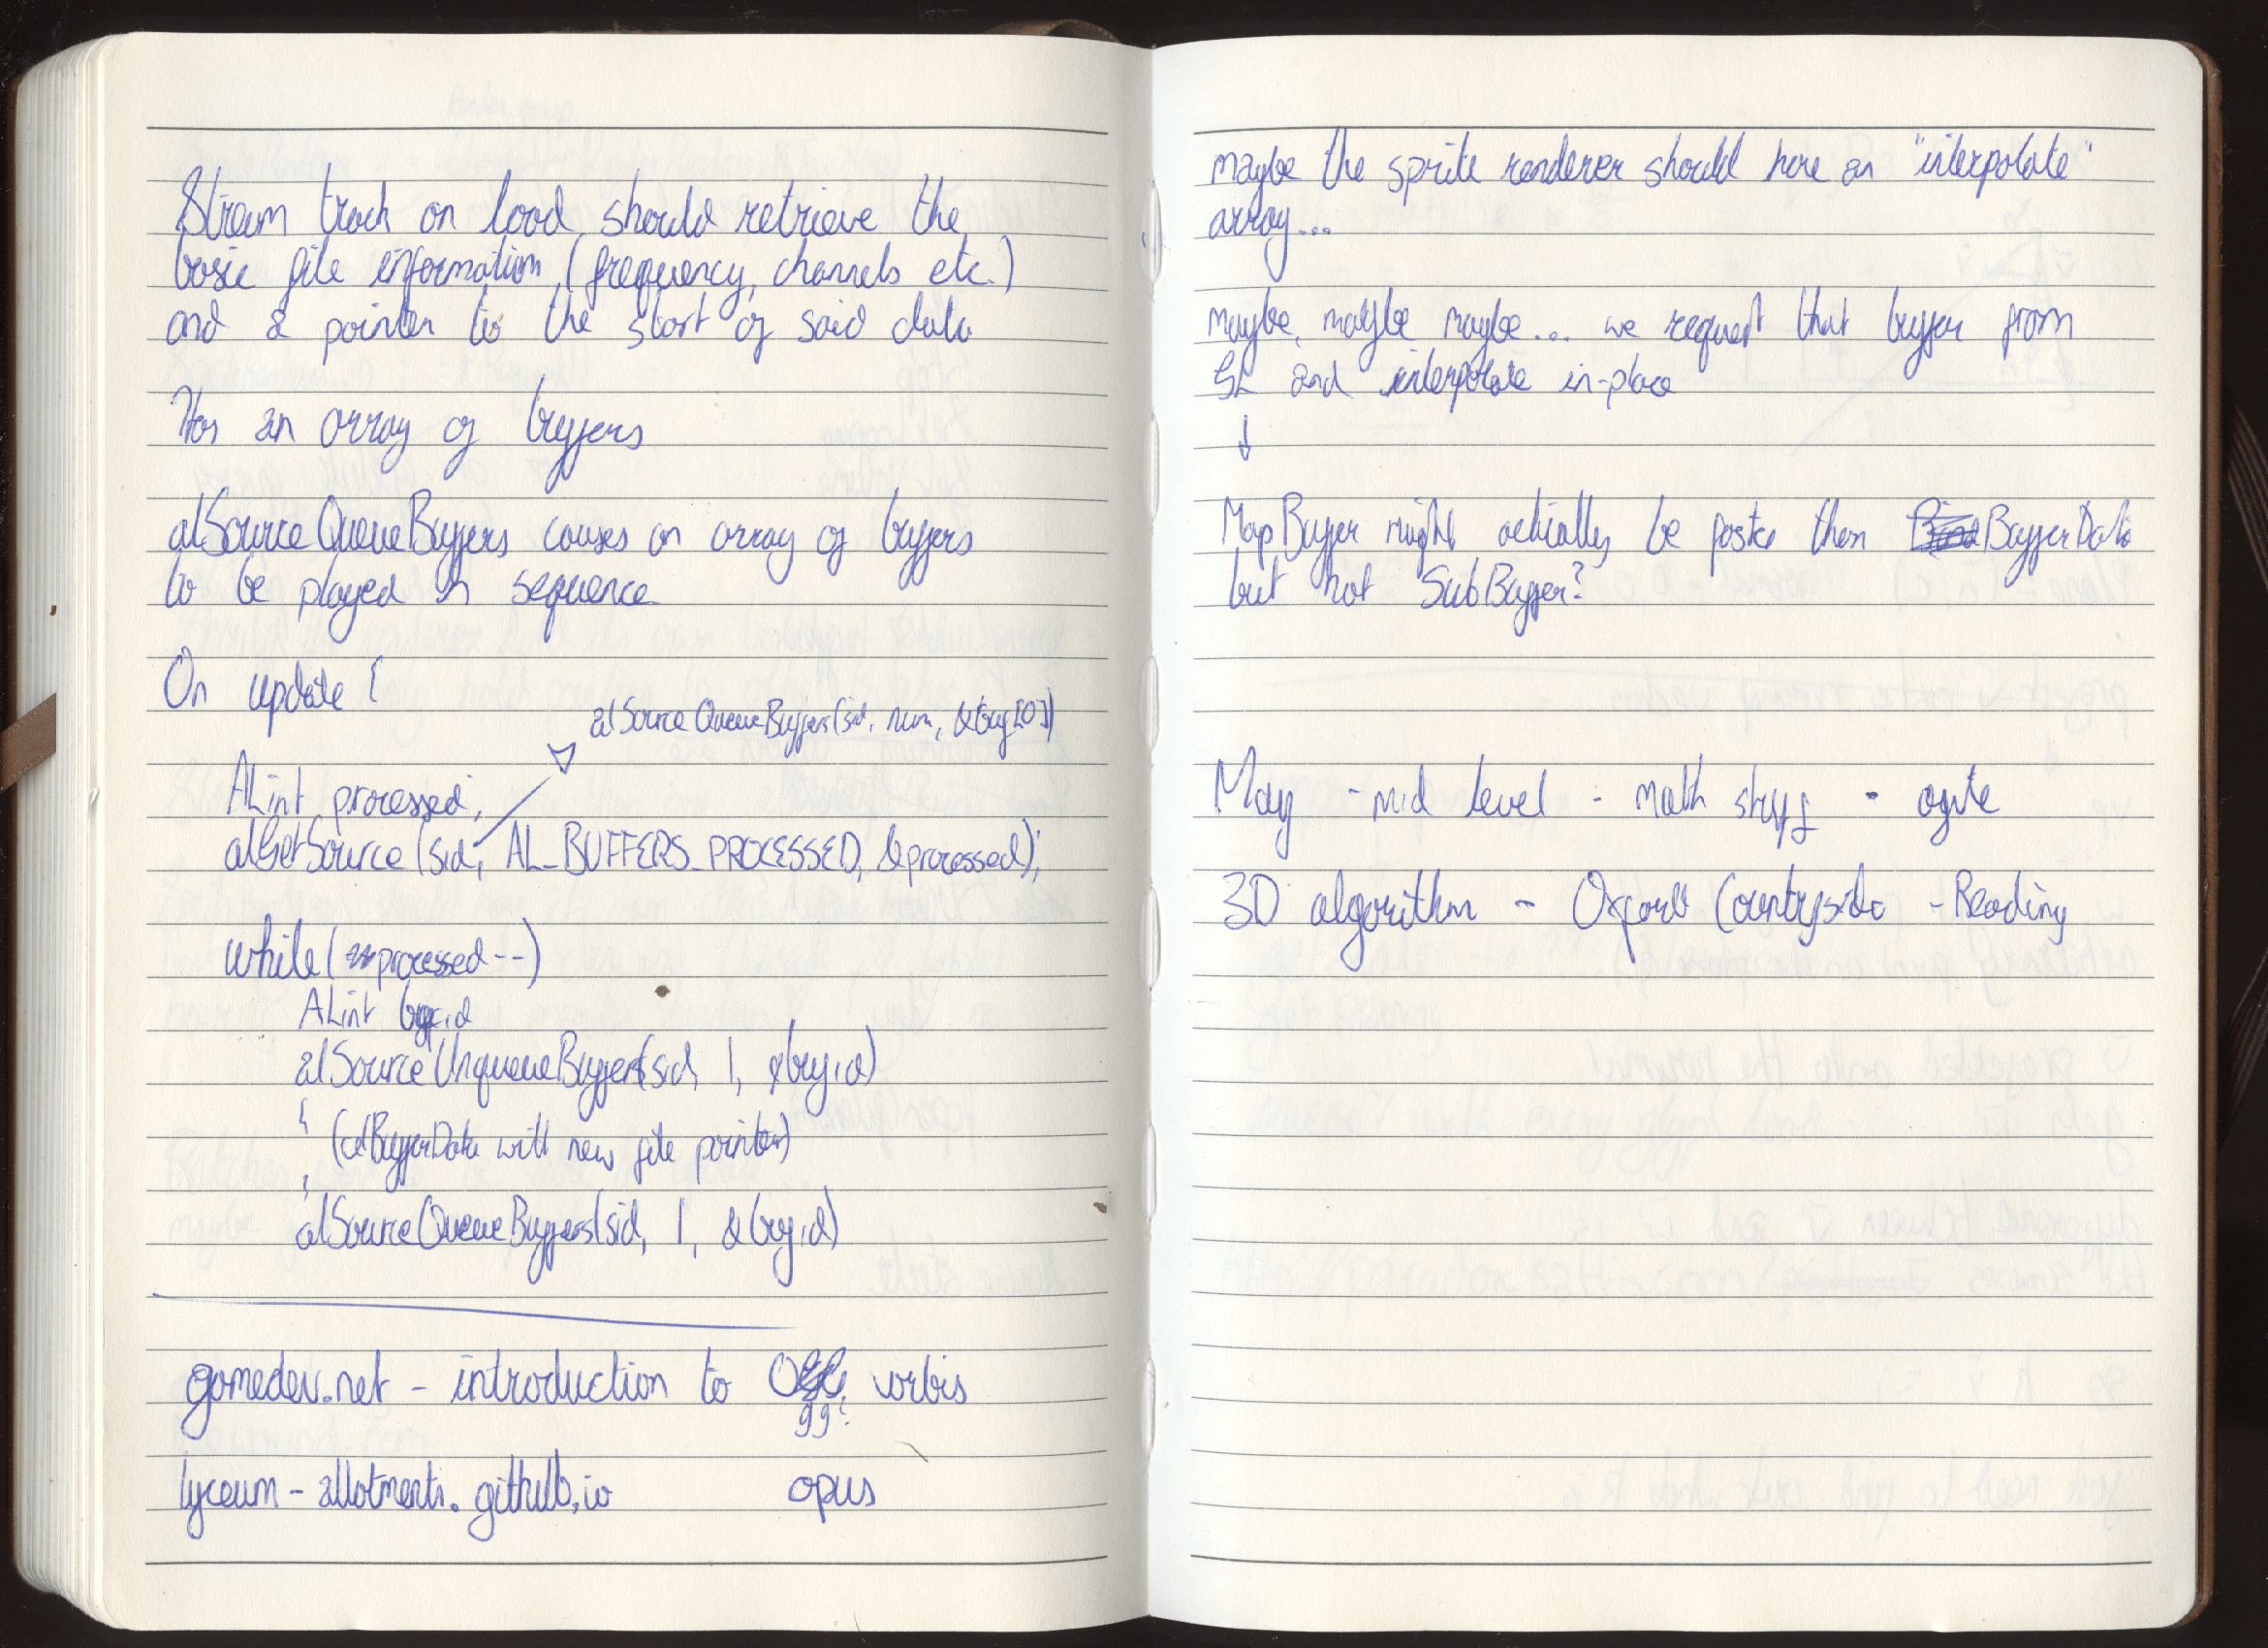 Stream track on load should retrieve the
basic file information (frequency, channels etc.)
and a pointer to the start of said data
Has an array of buffers
alSourceQueueBuffers causes an array of buffers
to be played in sequence
On update {
alSourceQueueBuffers(sid, num, &buf[0])
ALint processed;
alGetSource(sid, AL_BUFFERS_PROCESSED, &processed);
while(processed--)
ALint bufid
alSourceUnqueueBuffers(sid, 1, &bufid)
(alBufferData with new file pointer)
alSourceQueueBuffers(sid, 1, &bufid)
gamedev.net - introduction to Ogg vorbis
gg?
lyceum-allotments.github.io opus
maybe the sprite renderer should have an "interpolate"
array...
maybe, maybe maybe... we request that buffer from
GL and interpolate in-place
↓
MapBuffer might actually be faster than BufferData
but not SubBuffer?
May - mid level - math stuff - agile
3D algorithm - Oxford Countryside - Reading